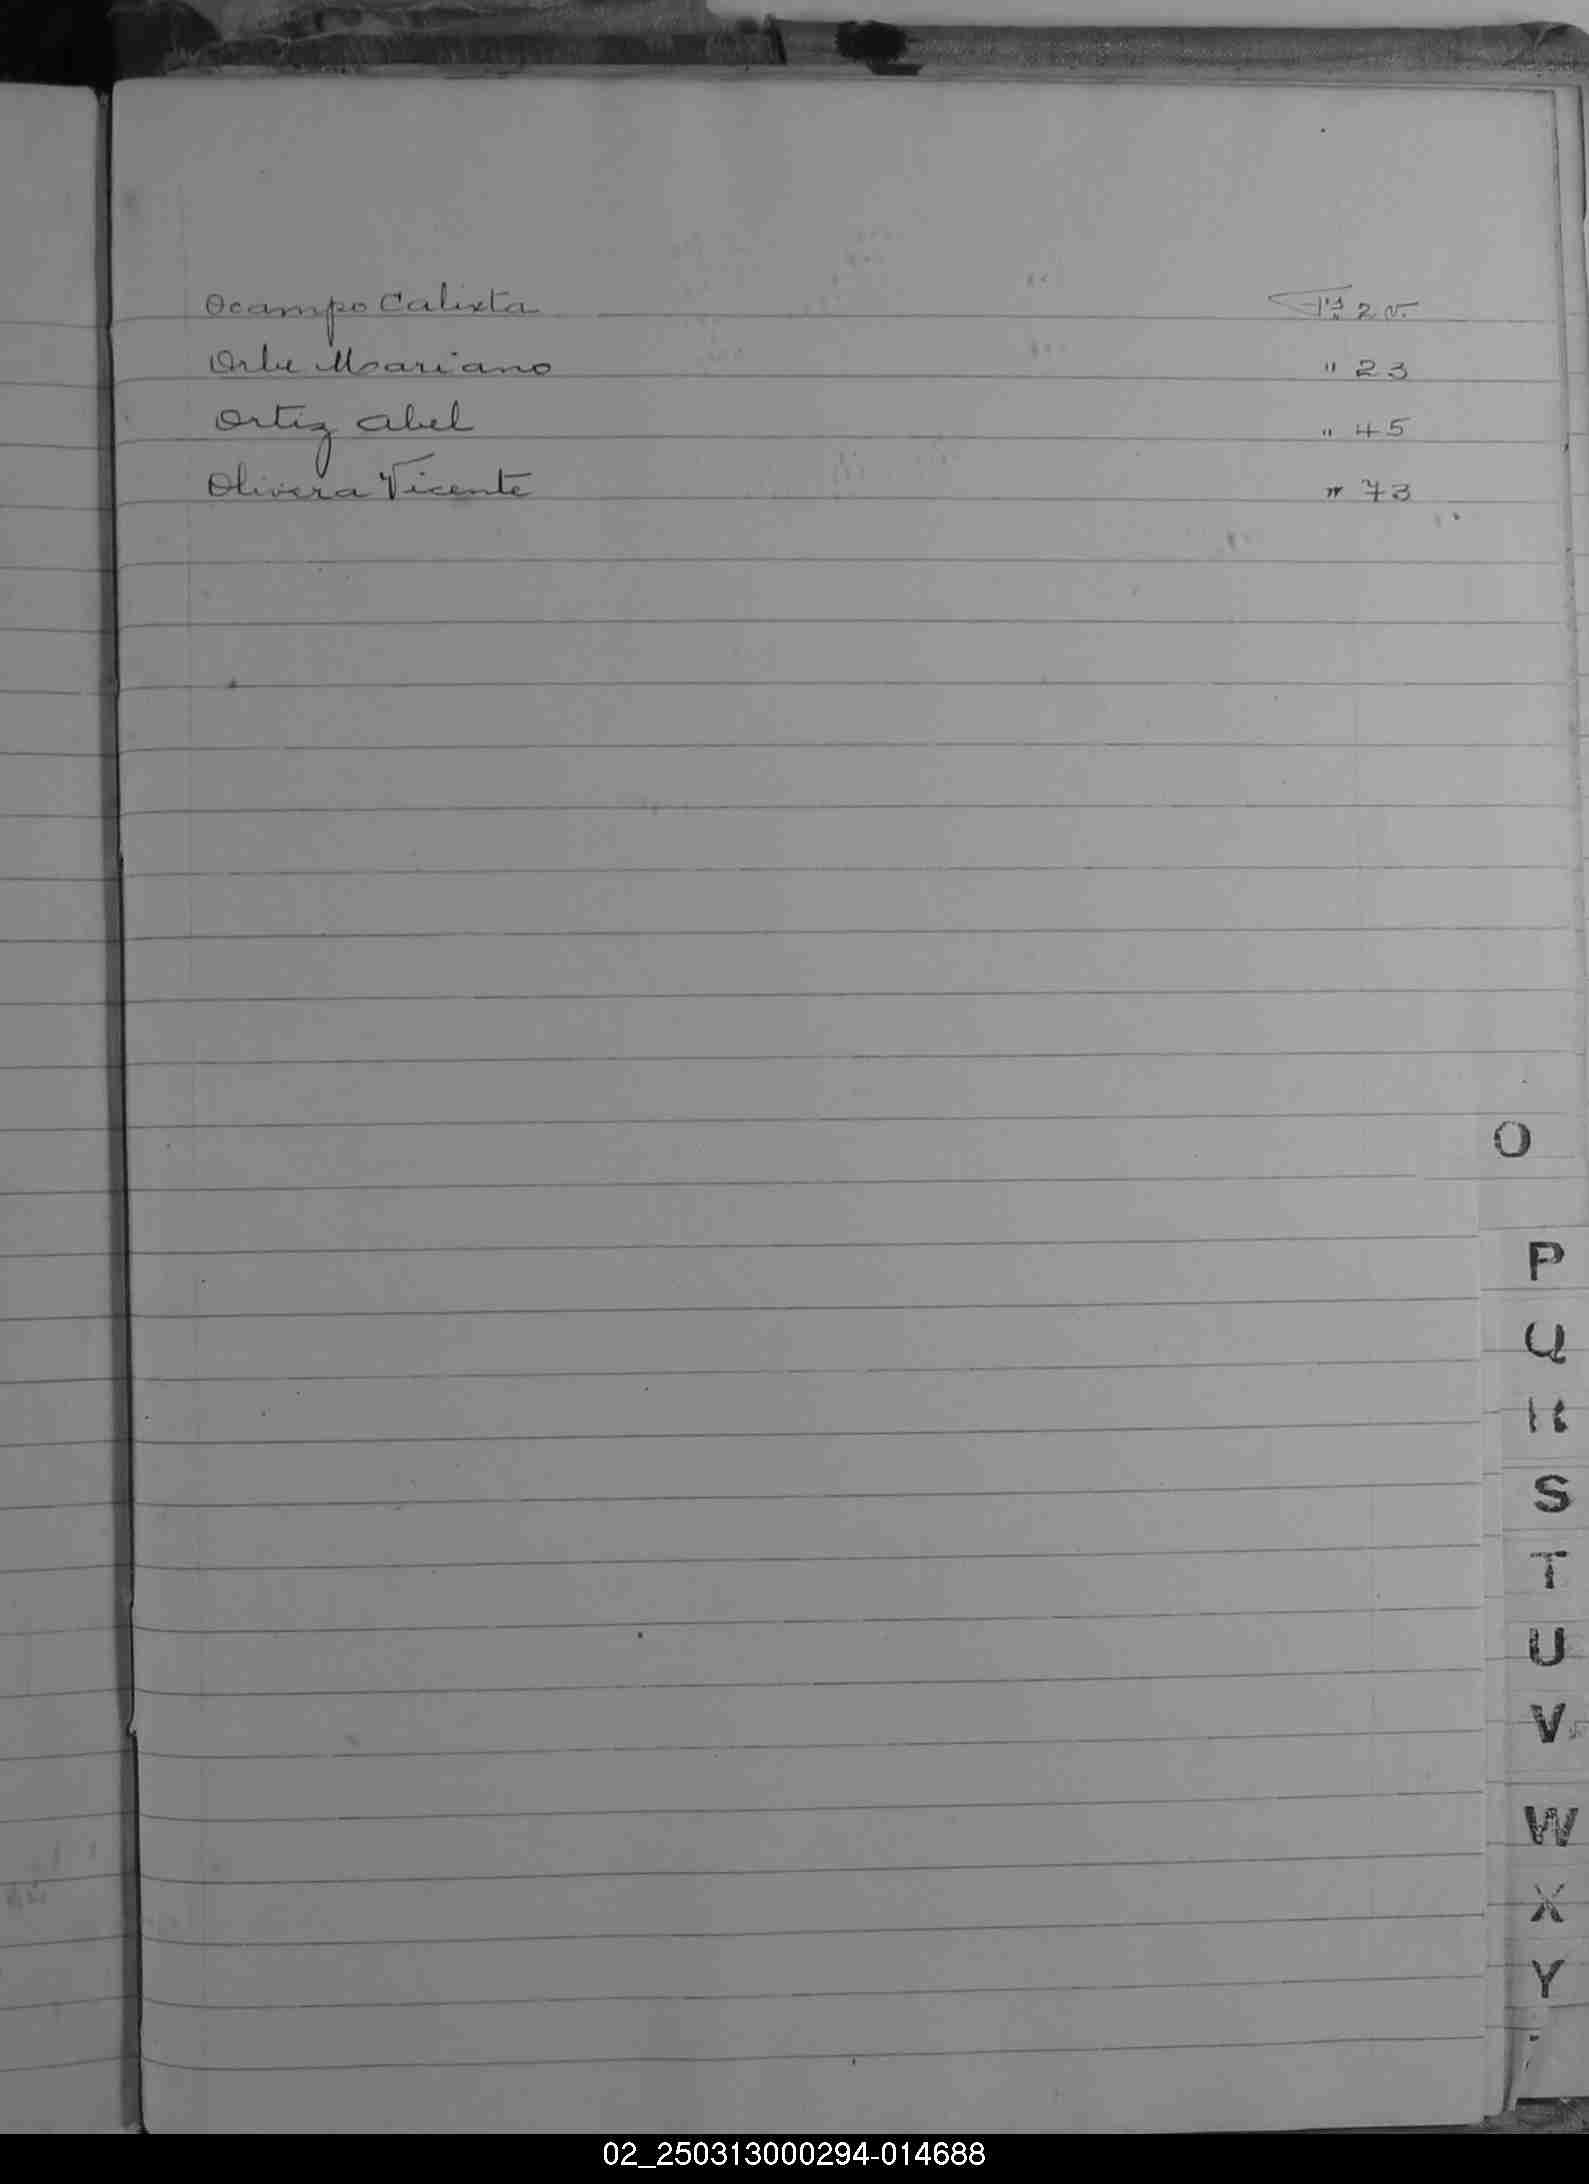 Ocampo Calixta Fs. 2 v.
Orbe Mariano " 23
Ortiz Abel " 45
Olivera Vicente " 73
O
P
Q
R
S
T
U
V
W
X
Y
02_250313000294-014688